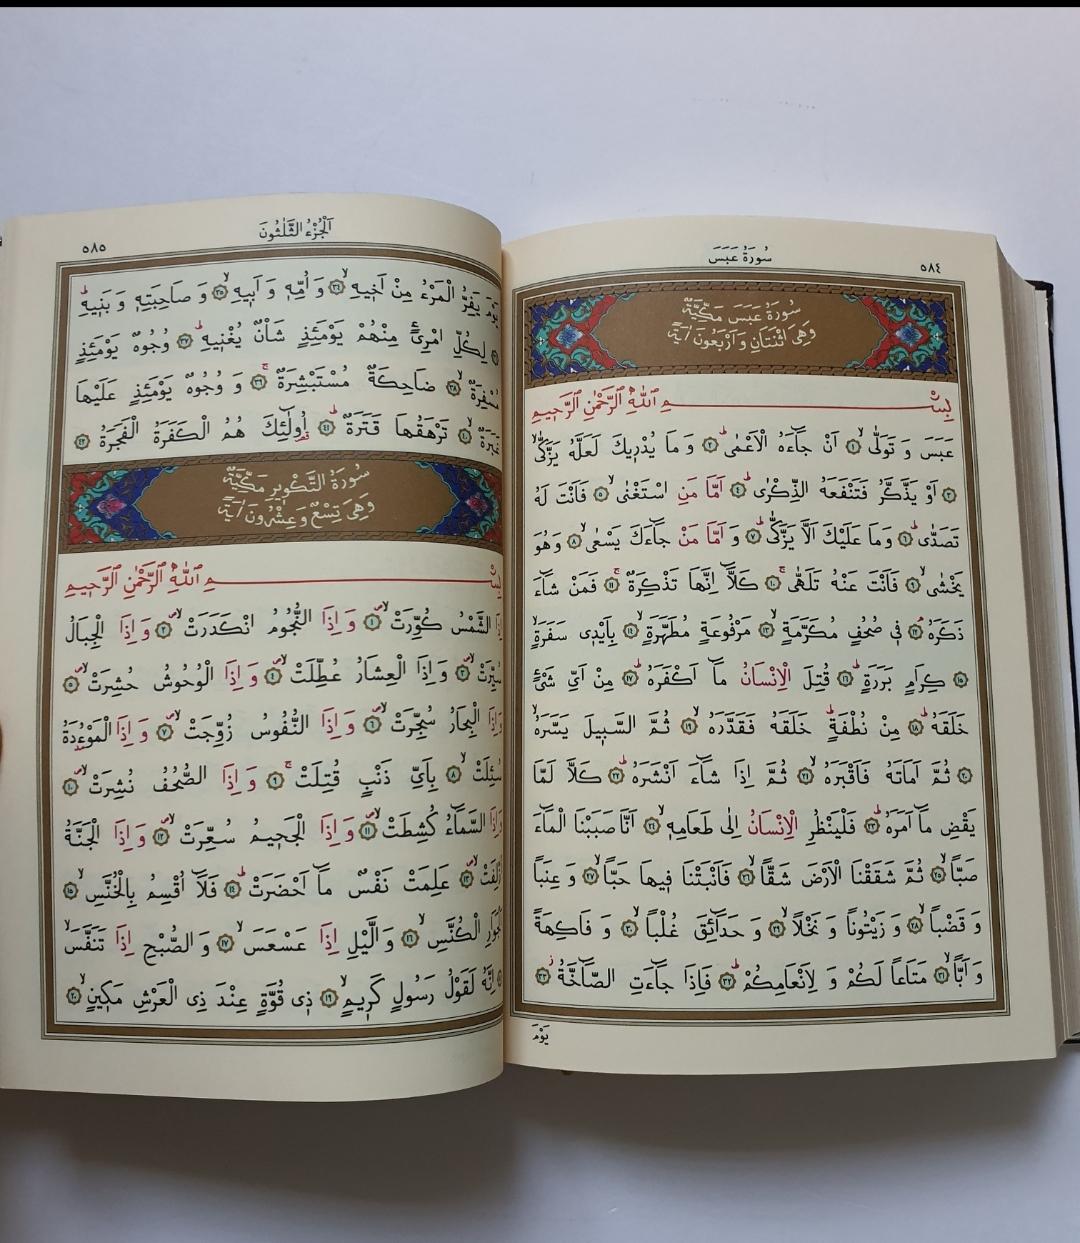 سُورَةُ عَبَسَ
٥٨٤
سُورَةُ عَبَسَ مَكِّيَّةٌ
وَهِىَ اثْنَتَانِ وَاَرْبَعُونَ اٰيَةً
بِسْمِ اللّٰهِ الرَّحْمٰنِ الرَّحٖيمِ
عَبَسَ وَ تَوَلّٰىۙ ﴿١﴾ اَنْ جَٓاءَهُ الْاَعْمٰىۜ ﴿٢﴾ وَ مَا يُدْرٖيكَ لَعَلَّهُ يَزَّكّٰىۙ
﴿٣﴾ اَوْ يَذَّكَّرُ فَتَنْفَعَهُ الذِّكْرٰىۜ ﴿٤﴾ اَمَّا مَنِ اسْتَغْنٰىۙ ﴿٥﴾ فَاَنْتَ لَهُ
تَصَدّٰىۜ ﴿٦﴾ وَمَا عَلَيْكَ اَلَّا يَزَّكّٰىۜ ﴿٧﴾ وَ اَمَّا مَنْ جَٓاءَكَ يَسْعٰىۙ ﴿٨﴾ وَهُوَ
يَخْشٰىۙ ﴿٩﴾ فَاَنْتَ عَنْهُ تَلَهّٰىۚ ﴿١٠﴾ كَلَّٓا اِنَّهَا تَذْكِرَةٌۚ ﴿١١﴾ فَمَنْ شَٓاءَ
ذَكَرَهُۢ ﴿١٢﴾ فٖى صُحُفٍ مُكَرَّمَةٍۙ ﴿١٣﴾ مَرْفُوعَةٍ مُطَهَّرَةٍۙ ﴿١٤﴾ بِاَيْدٖى سَفَرَةٍۙ
﴿١٥﴾ كِرَامٍ بَرَرَةٍۜ ﴿١٦﴾ قُتِلَ الْاِنْسَانُ مَٓا اَكْفَرَهُۜ ﴿١٧﴾ مِنْ اَىِّ شَىْءٍ
خَلَقَهُۜ ﴿١٨﴾ مِنْ نُطْفَةٍۜ خَلَقَهُ فَقَدَّرَهُۙ ﴿١٩﴾ ثُمَّ السَّبٖيلَ يَسَّرَهُۙ
﴿٢٠﴾ ثُمَّ اَمَاتَهُ فَاَقْبَرَهُۙ ﴿٢١﴾ ثُمَّ اِذَا شَٓاءَ اَنْشَرَهُۜ ﴿٢٢﴾ كَلَّا لَمَّا
يَقْضِ مَٓا اَمَرَهُۜ ﴿٢٣﴾ فَلْيَنْظُرِ الْاِنْسَانُ اِلٰى طَعَامِهٖۙ ﴿٢٤﴾ اَنَّا صَبَبْنَا الْمَٓاءَ
صَبًّاۙ ﴿٢٥﴾ ثُمَّ شَقَقْنَا الْاَرْضَ شَقًّاۙ ﴿٢٦﴾ فَاَنْبَتْنَا فٖيهَا حَبًّاۙ ﴿٢٧﴾ وَ عِنَبًا
وَ قَضْبًاۙ ﴿٢٨﴾ وَ زَيْتُونًا وَ نَخْلًاۙ ﴿٢٩﴾ وَ حَدَٓائِقَ غُلْبًاۙ ﴿٣٠﴾ وَ فَاكِهَةً
وَ اَبًّاۙ ﴿٣١﴾ مَتَاعًا لَكُمْ وَ لِاَنْعَامِكُمْۜ ﴿٣٢﴾ فَاِذَا جَٓاءَتِ الصَّٓاخَّةُۘ ﴿٣٣﴾
يَوْمَ
اَلْجُزْءُ الثَّلٰثُونَ
٥٨٥
يَوْمَ يَفِرُّ الْمَرْءُ مِنْ اَخٖيهِۙ ﴿٣٤﴾ وَ اُمِّهٖ وَ اَبٖيهِۙ ﴿٣٥﴾ وَ صَاحِبَتِهٖ وَ بَنٖيهِۜ
لِكُلِّ امْرِئٍ مِنْهُمْ يَوْمَئِذٍ شَاْنٌ يُغْنٖيهِۜ ﴿٣٧﴾ وُجُوهٌ يَوْمَئِذٍ
مُسْفِرَةٌۙ ﴿٣٨﴾ ضَاحِكَةٌ مُسْتَبْشِرَةٌۚ ﴿٣٩﴾ وَ وُجُوهٌ يَوْمَئِذٍ عَلَيْهَا
غَبَرَةٌۙ ﴿٤٠﴾ تَرْهَقُهَا قَتَرَةٌۜ ﴿٤١﴾ اُو۬لٰٓئِكَ هُمُ الْكَفَرَةُ الْفَجَرَةُ ﴿٤٢﴾
سُورَةُ التَّكْوٖيرِ مَكِّيَّةٌ
وَهِىَ تِسْعٌ وَعِشْرُونَ اٰيَةً
بِسْمِ اللّٰهِ الرَّحْمٰنِ الرَّحٖيمِ
اِذَا الشَّمْسُ كُوِّرَتْۙ ﴿١﴾ وَ اِذَا النُّجُومُ انْكَدَرَتْۙ ﴿٢﴾ وَ اِذَا الْجِبَالُ
سُيِّرَتْۙ ﴿٣﴾ وَ اِذَا الْعِشَارُ عُطِّلَتْۙ ﴿٤﴾ وَ اِذَا الْوُحُوشُ حُشِرَتْۙ ﴿٥﴾
وَ اِذَا الْبِحَارُ سُجِّرَتْۙ ﴿٦﴾ وَ اِذَا النُّفُوسُ زُوِّجَتْۙ ﴿٧﴾ وَ اِذَا الْمَوْءُ۫دَةُ
سُئِلَتْۙ ﴿٨﴾ بِاَىِّ ذَنْبٍ قُتِلَتْۚ ﴿٩﴾ وَ اِذَا الصُّحُفُ نُشِرَتْۙ ﴿١٠﴾
وَ اِذَا السَّمَٓاءُ كُشِطَتْۙ ﴿١١﴾ وَ اِذَا الْجَحٖيمُ سُعِّرَتْۙ ﴿١٢﴾ وَ اِذَا الْجَنَّةُ
اُزْلِفَتْۙ ﴿١٣﴾ عَلِمَتْ نَفْسٌ مَٓا اَحْضَرَتْۜ ﴿١٤﴾ فَلَٓا اُقْسِمُ بِالْخُنَّسِۙ ﴿١٥﴾
اَلْجَوَارِ الْكُنَّسِۙ ﴿١٦﴾ وَ الَّيْلِ اِذَا عَسْعَسَۙ ﴿١٧﴾ وَ الصُّبْحِ اِذَا تَنَفَّسَۙ
اِنَّهُ لَقَوْلُ رَسُولٍ كَرٖيمٍۙ ﴿١٩﴾ ذٖى قُوَّةٍ عِنْدَ ذِى الْعَرْشِ مَكٖينٍۙ ﴿٢٠﴾